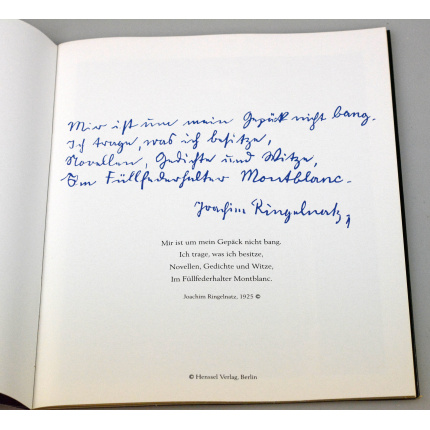 Mir ist um mein Gepäck nicht bang.
Ich trage, was ich besitze,
Novellen, Gedichte und Witze,
Im Füllfederhalter Montblanc.
Joachim Ringelnatz,
Mir ist um mein Gepäck nicht bang.
Ich trage, was ich besitze,
Novellen, Gedichte und Witze,
Im Füllfederhalter Montblanc.
Joachim Ringelnatz, 1925 ©
© Henssel Verlag, Berlin